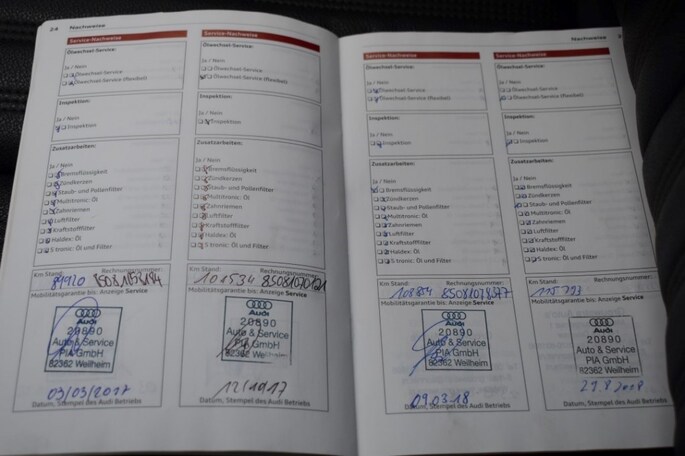 34 Nachweise
Service-Nachweise
Ölwechsel-Service:
Ja / Nein
Ölwechsel-Service
Ölwechsel-Service (flexibel)
Inspektion:
Ja / Nein
Inspektion
Zusatzarbeiten:
Ja / Nein
Bremsflüssigkeit
Zündkerzen
Staub- und Pollenfilter
Multitronic: Öl
Zahnriemen
Luftfilter
Kraftstofffilter
Haldex: Öl
S tronic: Öl und Filter
Km Stand: Rechnungsnummer:
89920
Mobilitätsgarantie bis: Anzeige Service
Audi
20890
Auto & Service
PIA GmbH
82362 Weilheim
03/03/2017
Datum, Stempel des Audi Betriebs
Service-Nachweise
Ölwechsel-Service:
Ja / Nein
Ölwechsel-Service
Ölwechsel-Service (flexibel)
Inspektion:
Ja / Nein
Inspektion
Zusatzarbeiten:
Ja / Nein
Bremsflüssigkeit
Zündkerzen
Staub- und Pollenfilter
Multitronic: Öl
Zahnriemen
Luftfilter
Kraftstofffilter
Haldex: Öl
S tronic: Öl und Filter
Km Stand: Rechnungsnummer:
101534
Mobilitätsgarantie bis: Anzeige Service
Audi
20890
Auto & Service
PIA GmbH
82362 Weilheim
Datum, Stempel des Audi Betriebs
Nachweise
Service-Nachweise
Ölwechsel-Service:
Ja / Nein
Ölwechsel-Service
Ölwechsel-Service (flexibel)
Inspektion:
Ja / Nein
Inspektion
Zusatzarbeiten:
Ja / Nein
Bremsflüssigkeit
Zündkerzen
Staub- und Pollenfilter
Multitronic: Öl
Zahnriemen
Luftfilter
Kraftstofffilter
Haldex: Öl
S tronic: Öl und Filter
Km Stand: Rechnungsnummer:
Mobilitätsgarantie bis: Anzeige Service
Audi
20890
Auto & Service
PIA GmbH
82362 Weilheim
09.03.18
Datum, Stempel des Audi Betriebs
Service-Nachweise
Ölwechsel-Service:
Ja / Nein
Ölwechsel-Service
Ölwechsel-Service (flexibel)
Inspektion:
Ja / Nein
Inspektion
Zusatzarbeiten:
Ja / Nein
Bremsflüssigkeit
Zündkerzen
Staub- und Pollenfilter
Multitronic: Öl
Zahnriemen
Luftfilter
Kraftstofffilter
Haldex: Öl
S tronic: Öl und Filter
Km Stand: Rechnungsnummer:
Mobilitätsgarantie bis: Anzeige Service
Audi
20890
Auto & Service
PIA GmbH
82362 Weilheim
Datum, Stempel des Audi Betriebs